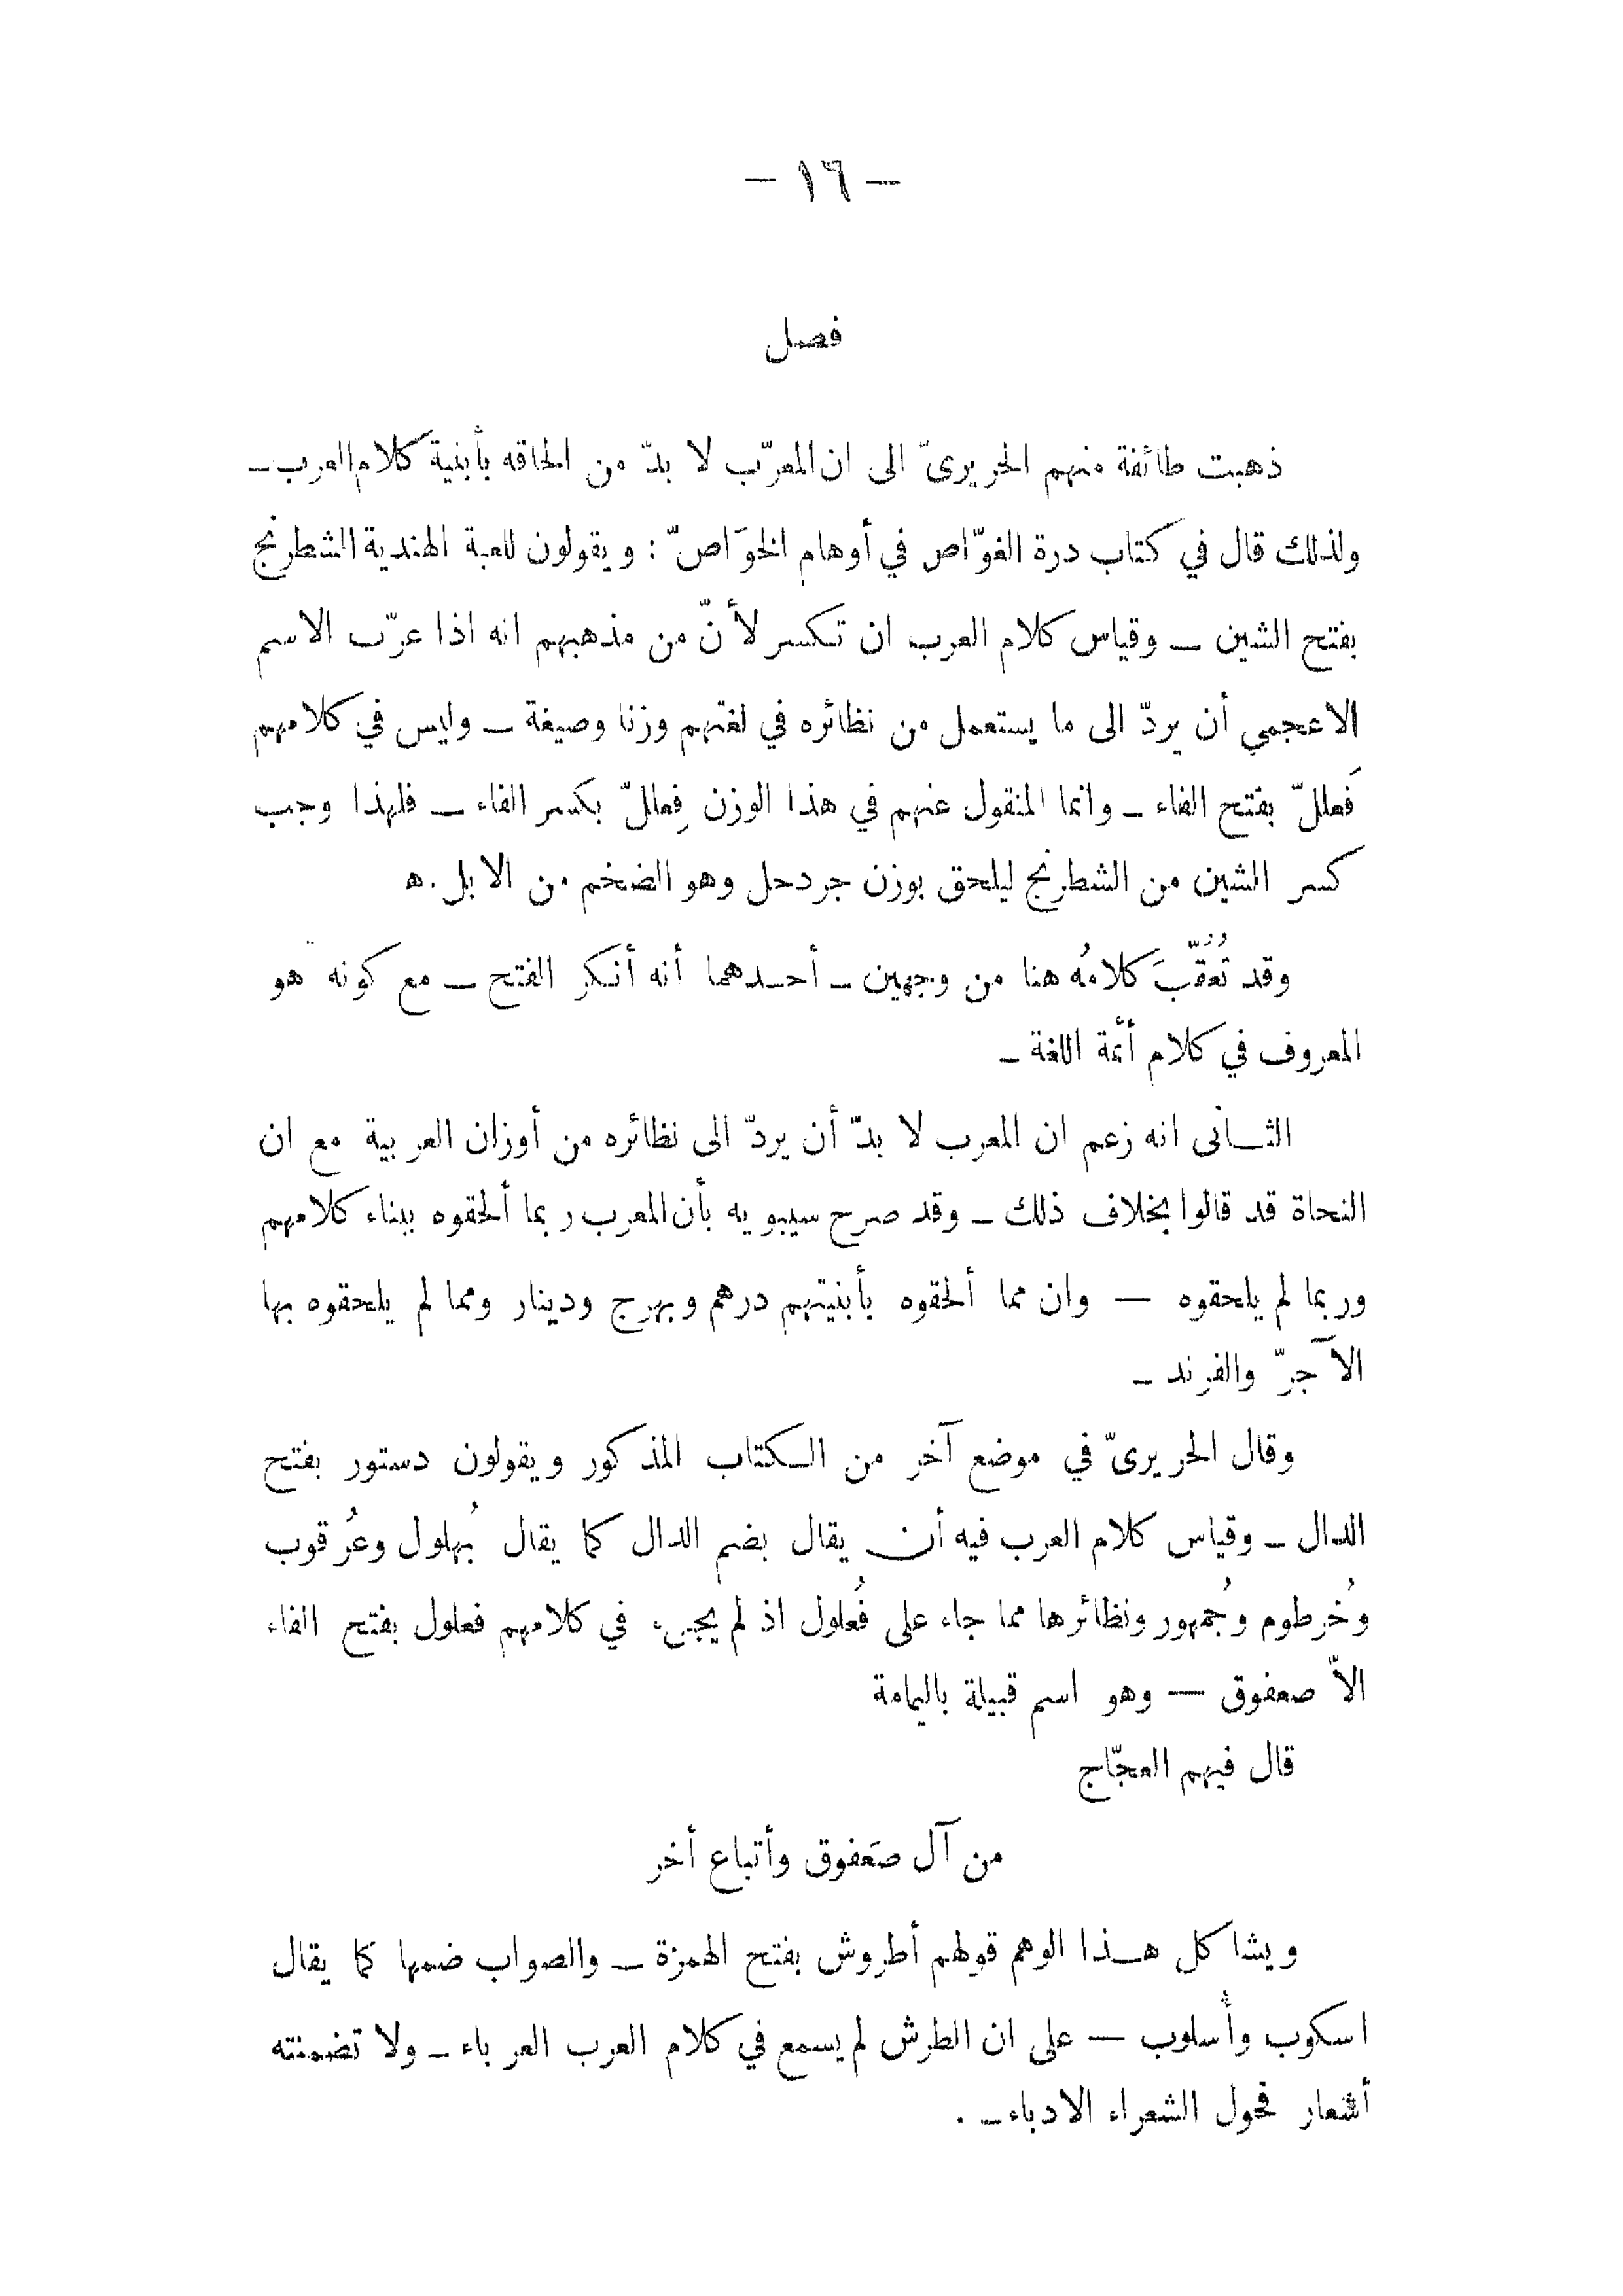 — ١٦ —
فصل
ذهبت طائفة منهم الحريرىّ الى ان المعرّب لا بدّ من الحاقه بأبنية كلام العرب ـ
ولذلك قال في كتاب درة الغوّاص في أوهام الخوَاصّ : ويقولون للعبة الهندية الشطرنج
بفتح الشين ـ وقياس كلام العرب ان تكسر لأنّ من مذهبهم انه اذا عرّب الاسم
الاعجمي أن يردّ الى ما يستعمل من نظائره في لغتهم وزنا وصيغة ـ وليس في كلامهم
فَعللّ بفتح الفاء ـ وانما المنقول عنهم في هذا الوزن فِعللّ بكسر الفاء ـ فلهذا وجب
كسر الشين من الشطرنج ليلحق بوزن جردحل وهو الضخم من الابل . ه
وقد تُعُقّبَ كلامُه هنا من وجهين ـ أحدهما أنه أنكر الفتح ـ مع كونه هو
المعروف في كلام أئمة اللغة ـ
الثـانى انه زعم ان المعرب لا بدّ أن يردّ الى نظائره من أوزان العربية مع ان
النحاة قد قالوا بخلاف ذلك ـ وقد صرح سيبويه بأن المعرب ربما ألحقوه ببناء كلامهم
وربما لم يلحقوه — وان مما ألحقوه بأبنيتهم درهم وبهرج ودينار ومما لم يلحقوه بها
الآجرّ والفرند ـ
وقال الحريرىّ في موضع آخر من الكتاب المذكور ويقولون دستور بفتح
الدال ـ وقياس كلام العرب فيه أن يقال بضم الدال كما يقال بُهلول وعُرقوب
وخُرطوم وجُمهور ونظائرها مما جاء على فُعلول اذ لم يجىء في كلامهم فعلول بفتح الفاء
الاّ صعفوق — وهو اسم قبيلة باليمامة
قال فيهم العجّاج
من آل صَعفوق وأتباع أخر
ويشاكل هـذا الوهم قولهم أطروش بفتح الهمزة ـ والصواب ضمها كما يقال
اسكوب وأُسلوب — على ان الطرش لم يسمع في كلام العرب العرباء ـ ولا تضمنته
أشعار فحول الشعراء الادباء ـ .